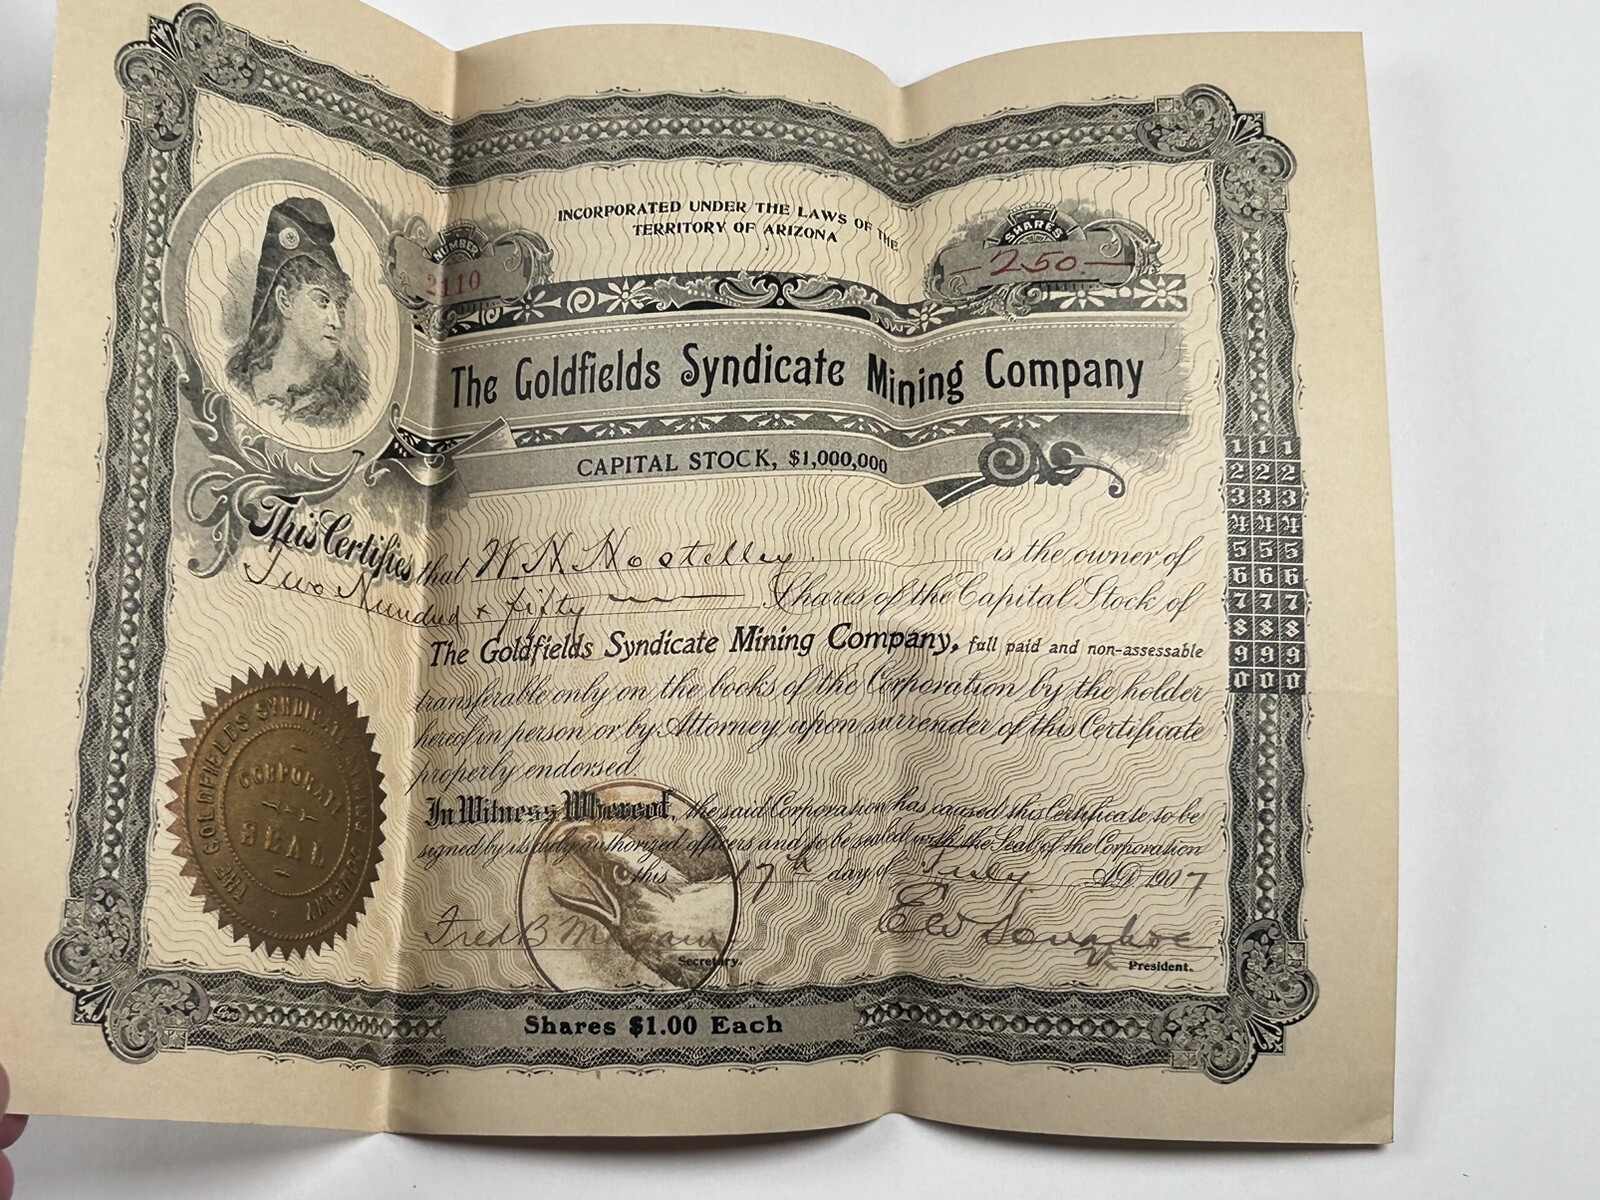 INCORPORATED UNDER THE LAWS OF THE
TERRITORY OF ARIZONA
NUMBER
2110
SHARES
— 250 —
The Goldfields Syndicate Mining Company
CAPITAL STOCK, $1,000,000
This Certifies that W. H. Hostelley. is the owner of
Two Hundred & fifty Shares of the Capital Stock of
The Goldfields Syndicate Mining Company, full paid and non-assessable
transferable only on the books of the Corporation by the holder
hereof in person or by Attorney upon surrender of this Certificate
properly endorsed.
In Witness Whereof, the said Corporation has caused this Certificate to be
signed by its duly authorized officers and to be sealed with the Seal of the Corporation
this 17th day of July A.D. 1907
Fred B
Secretary.
President.
THE GOLDFIELDS SYNDICATE MINING COMPANY
CORPORATE
SEAL
Shares $1.00 Each
1 1 1
2 2 2
3 3 3
4 4 4
5 5 5
6 6 6
7 7 7
8 8 8
9 9 9
0 0 0